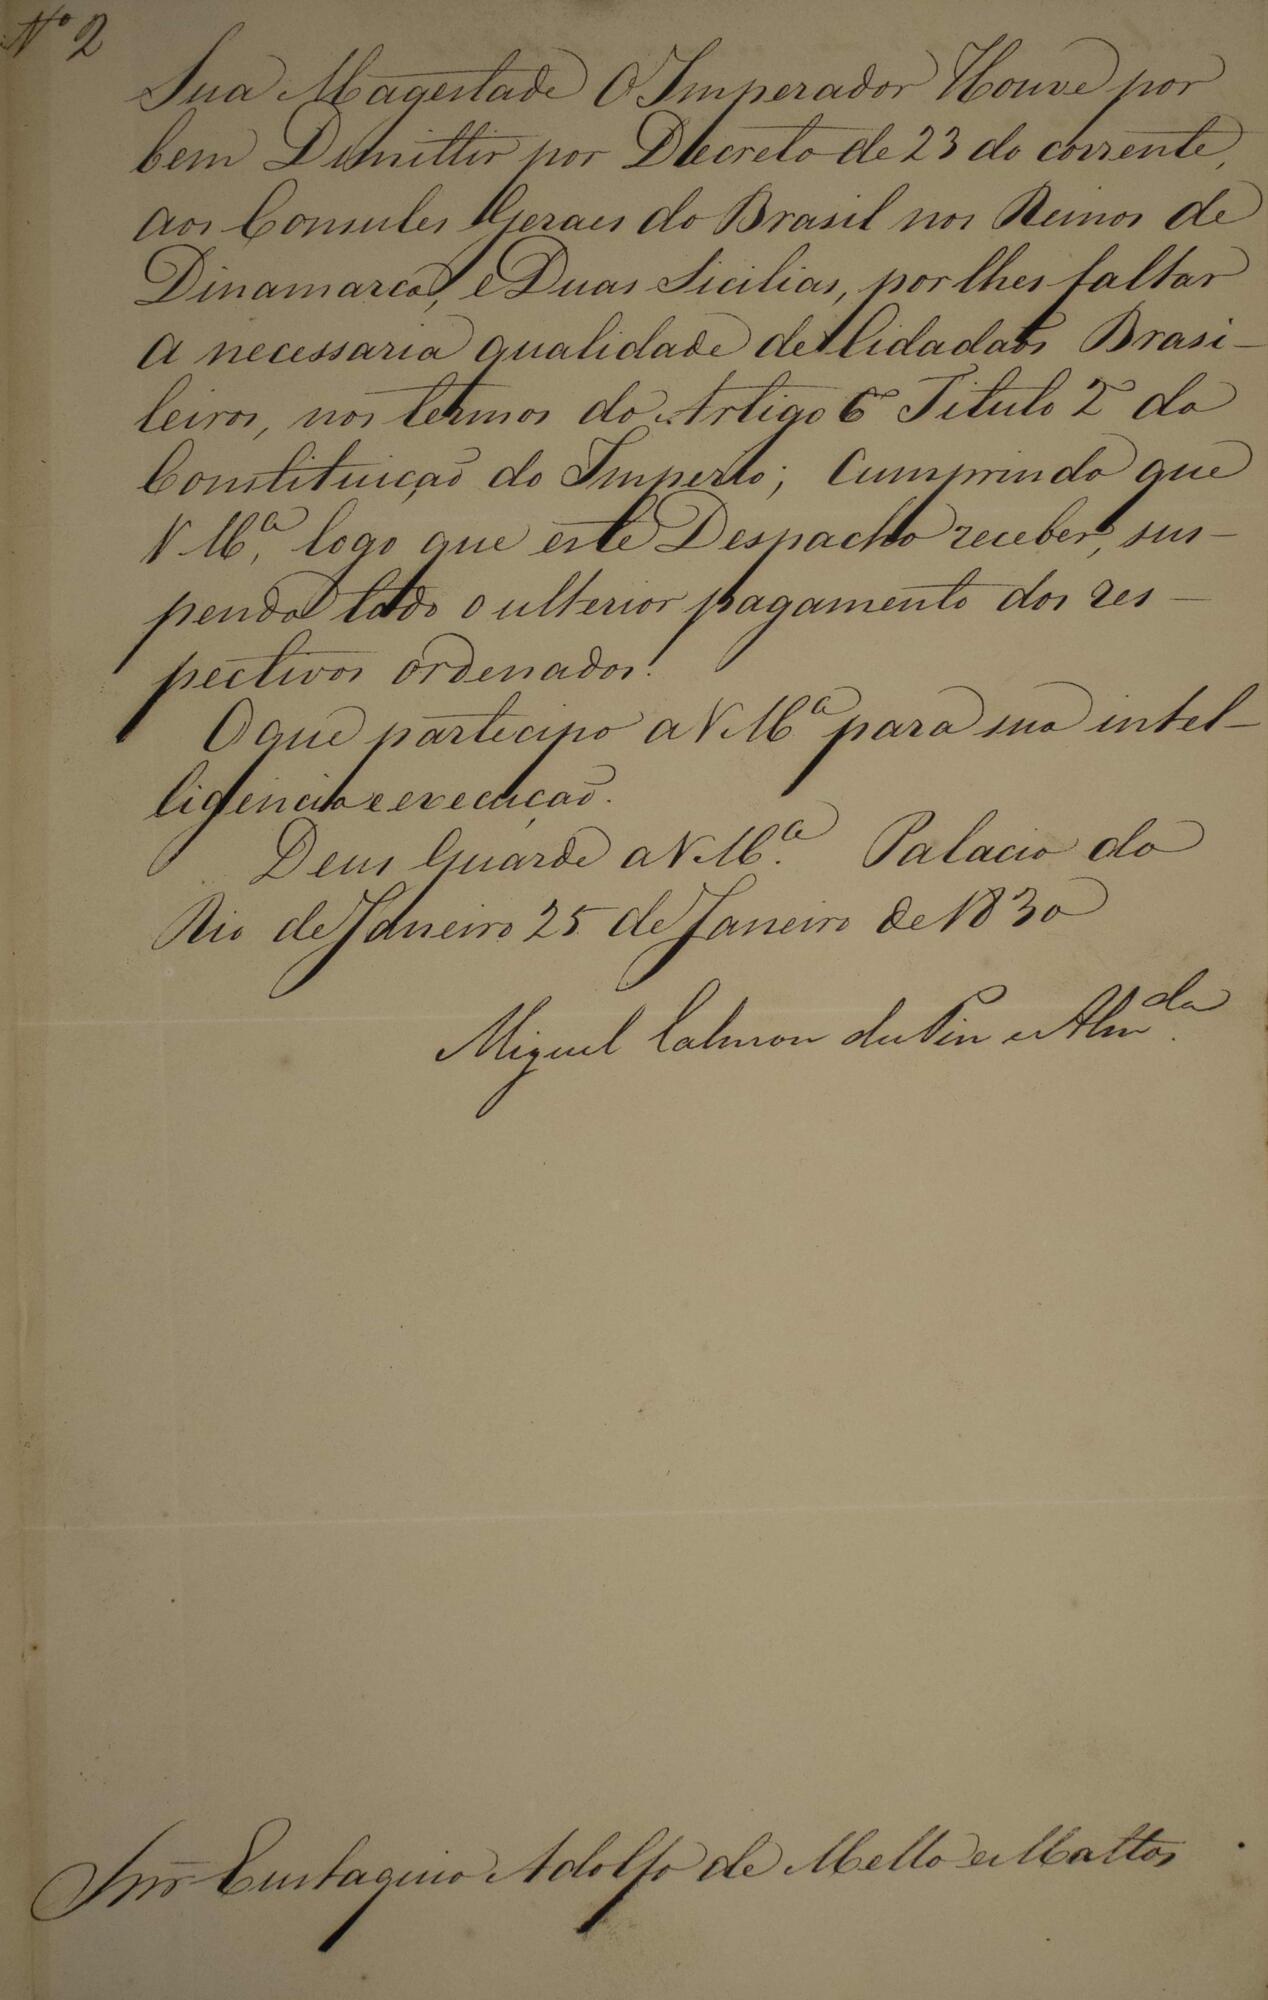 Nº 2
Sua Magestade O Imperador Houve por
bem Demittir por Decreto de 23 do corrente,
aos Consules Geraes do Brasil nos Reinos de
Dinamarca, e Duas Sicilias, por lhes faltar
a necessaria qualidade de Cidadaõs Brasi-
leiros, nos termos do Artigo 6º Titulo 2º da
Constituiçaõ do Imperio; Cumprindo que
V Mᶜᵉ, logo que este Despacho receber, sus-
penda todo o ulterior pagamento dos res-
pectivos ordenados.
O que partecipo a V Mᶜᵉ para sua intel-
ligencia e execuçaõ.
Deus Guarde a V Mᶜᵉ. Palacio do
Rio de Janeiro 25 de Janeiro de 1830
Miguel Calmon du Pin e Almᵈᵃ.
Snr̃ Eustaquio Adolfo de Mello e Mattos